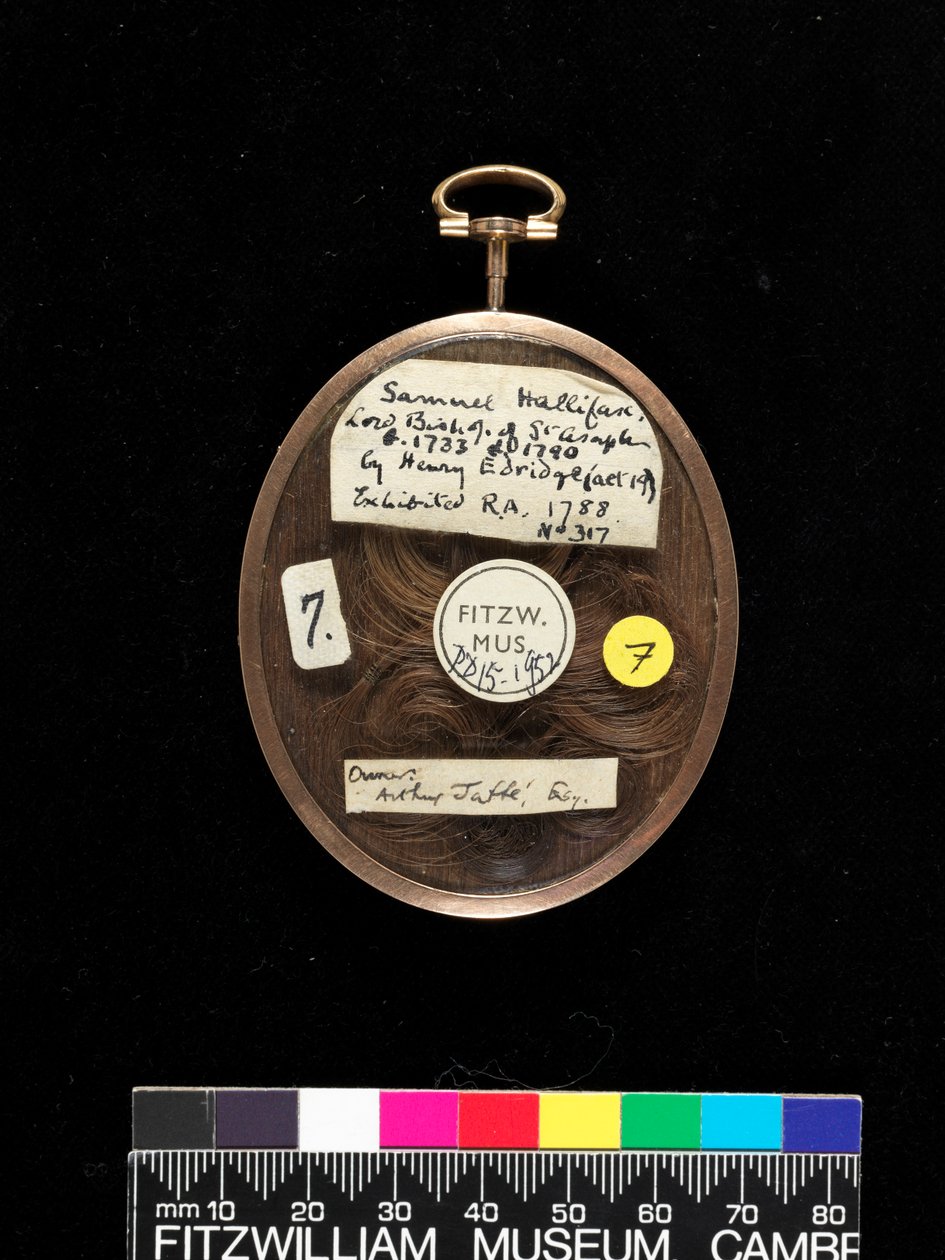 Samuel Hallifax,
Lord Bishop of St Asaph
b. 1733 d. 1790
by Henry Edridge (aet 19)
Exhibited R.A. 1788.
No 317
7.
FITZW.
MUS.
PD15-1952
7
Owner:
Arthur Jaffé, Esq.
mm 10 20 30 40 50 60 70 80
FITZWILLIAM MUSEUM CAMBR